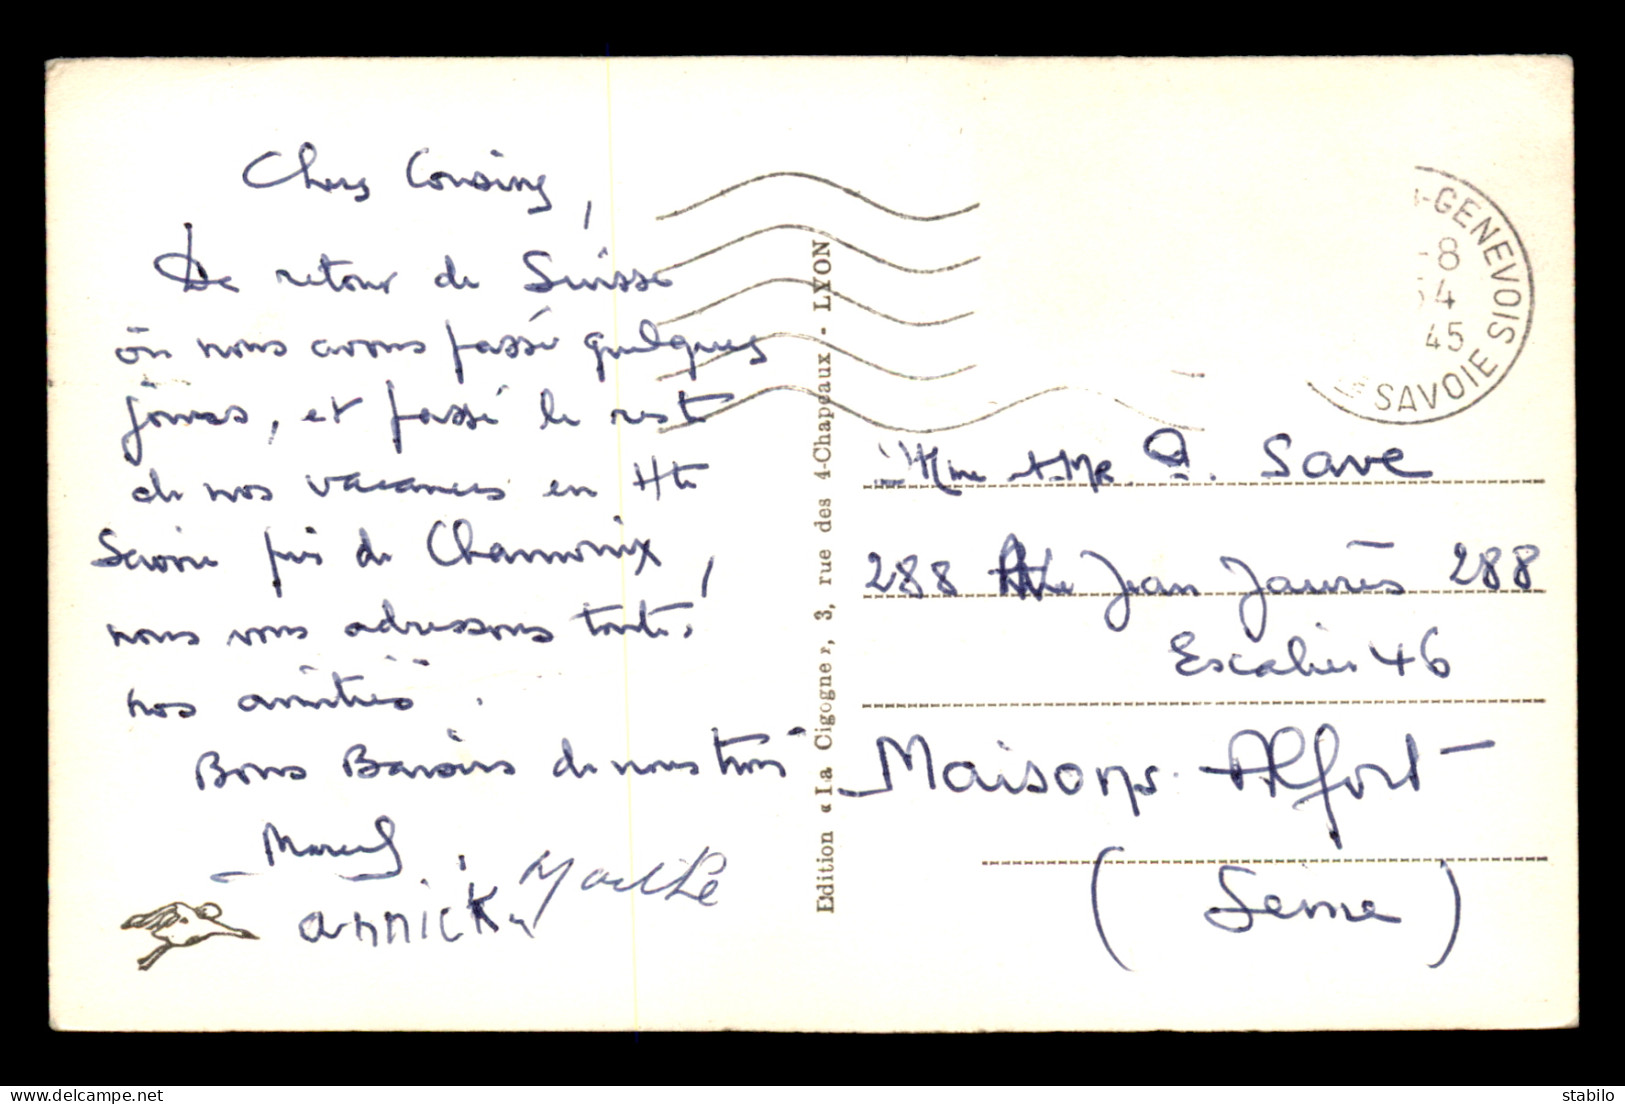 Chers Cousins,
De retour de Suisse
où nous avons passé quelques
jours, et passé le reste
de nos vacances en Hte
Savoie près de Chamonix,
nous vous adressons toutes
nos amitiés.
Bons Baisers de nous trois
Marcel,
annick
Marthe
Edition « La Cigogne », 3, rue des 4-Chapeaux - LYON
-GENEVOIS
-8
54
45
SAVOIE
Mme Save
288 Jean Jaurès 288
Escalier 46
Maisons-Alfort
(Seine)
delcampe.net